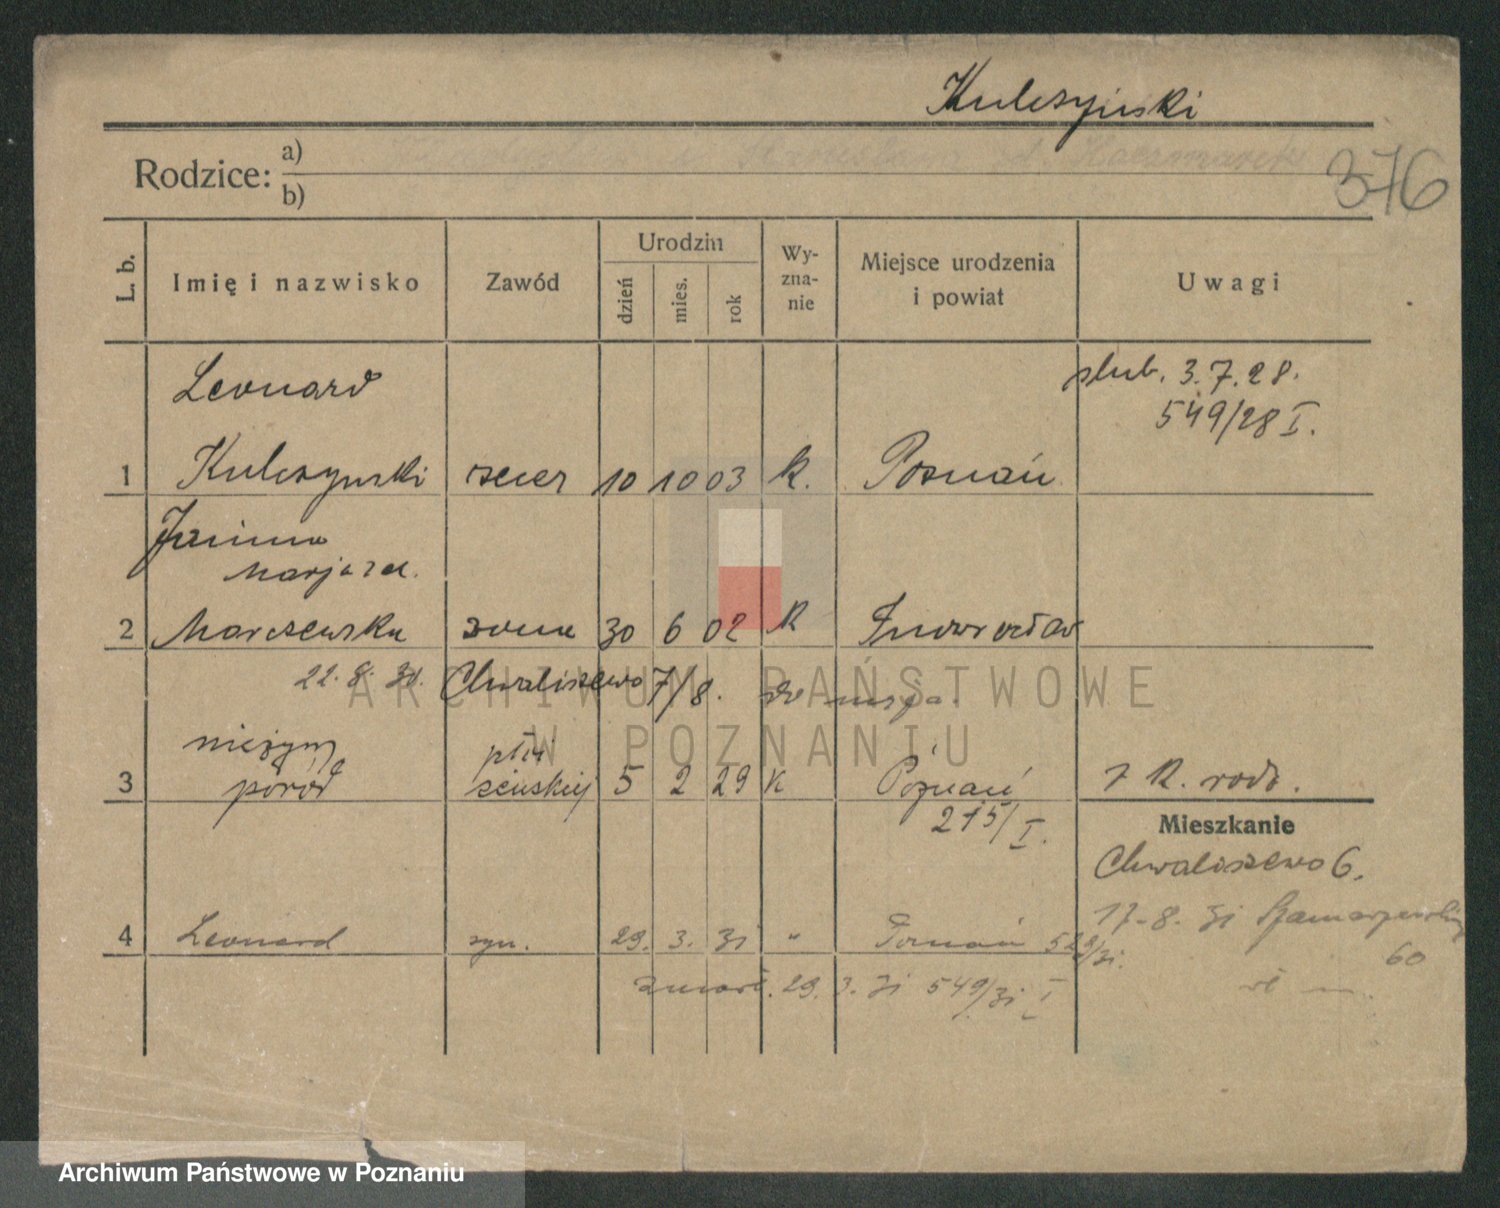 Kulczyński
Rodzice: a)
b)
376
L. b.
Imię i nazwisko
Zawód
Urodzin
dzień
mies.
rok
Wy-
zna-
nie
Miejsce urodzenia
i powiat
Uwagi
Leonard
ślub. 3.7.28.
549/28 I.
1 Kulczyński 10 10 03 k. Poznań
Janina
Marja
2 Marczewska żona 30 6 02 k Inowrocław
22. 8. 31. Chwaliszewo 7/8.
ARCHIWUM PAŃSTWOWE
W POZNANIU
nieżywy płci
3 poród żeńskiej 5 2 29 k Poznań
215/I.
Mieszkanie
Chwaliszewo 6.
17-8. 31
60
4 Leonard syn. 29. 3. 31 " Poznań 529/31.
zmarł. 29. 3. 31 549/31 I
Archiwum Państwowe w Poznaniu